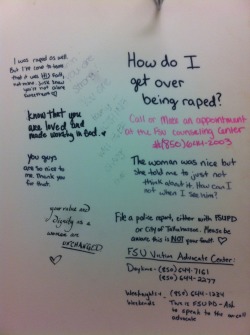 I was raped as well.
But I've come to learn
that it was HIS fault,
not mine. Just know
you're not alone
sweetheart ♡
Know that you
are loved and
made worthy in God. ♡
you guys
are so nice to
me. Thank you
for that.
your value and
Dignity as a
woman are
UNCHANGED
How do I
get over
being raped?
Call or Make an appointment
at the FSU counseling Center
#(850)644-2003
The woman was nice but
she told me to just not
think about it. How can I
not when I see him?
File a police report, either with FSUPD
or City of Tallahassee. Please be
aware this is NOT your fault. ♡
FSU Victim Advocate Center:
Daytime - (850) 644-7161
(850) 644-2277
Weeknights/ (850) 644-1234
Weekends This is FSUPD - Ask
to speak to the on-call
advocate